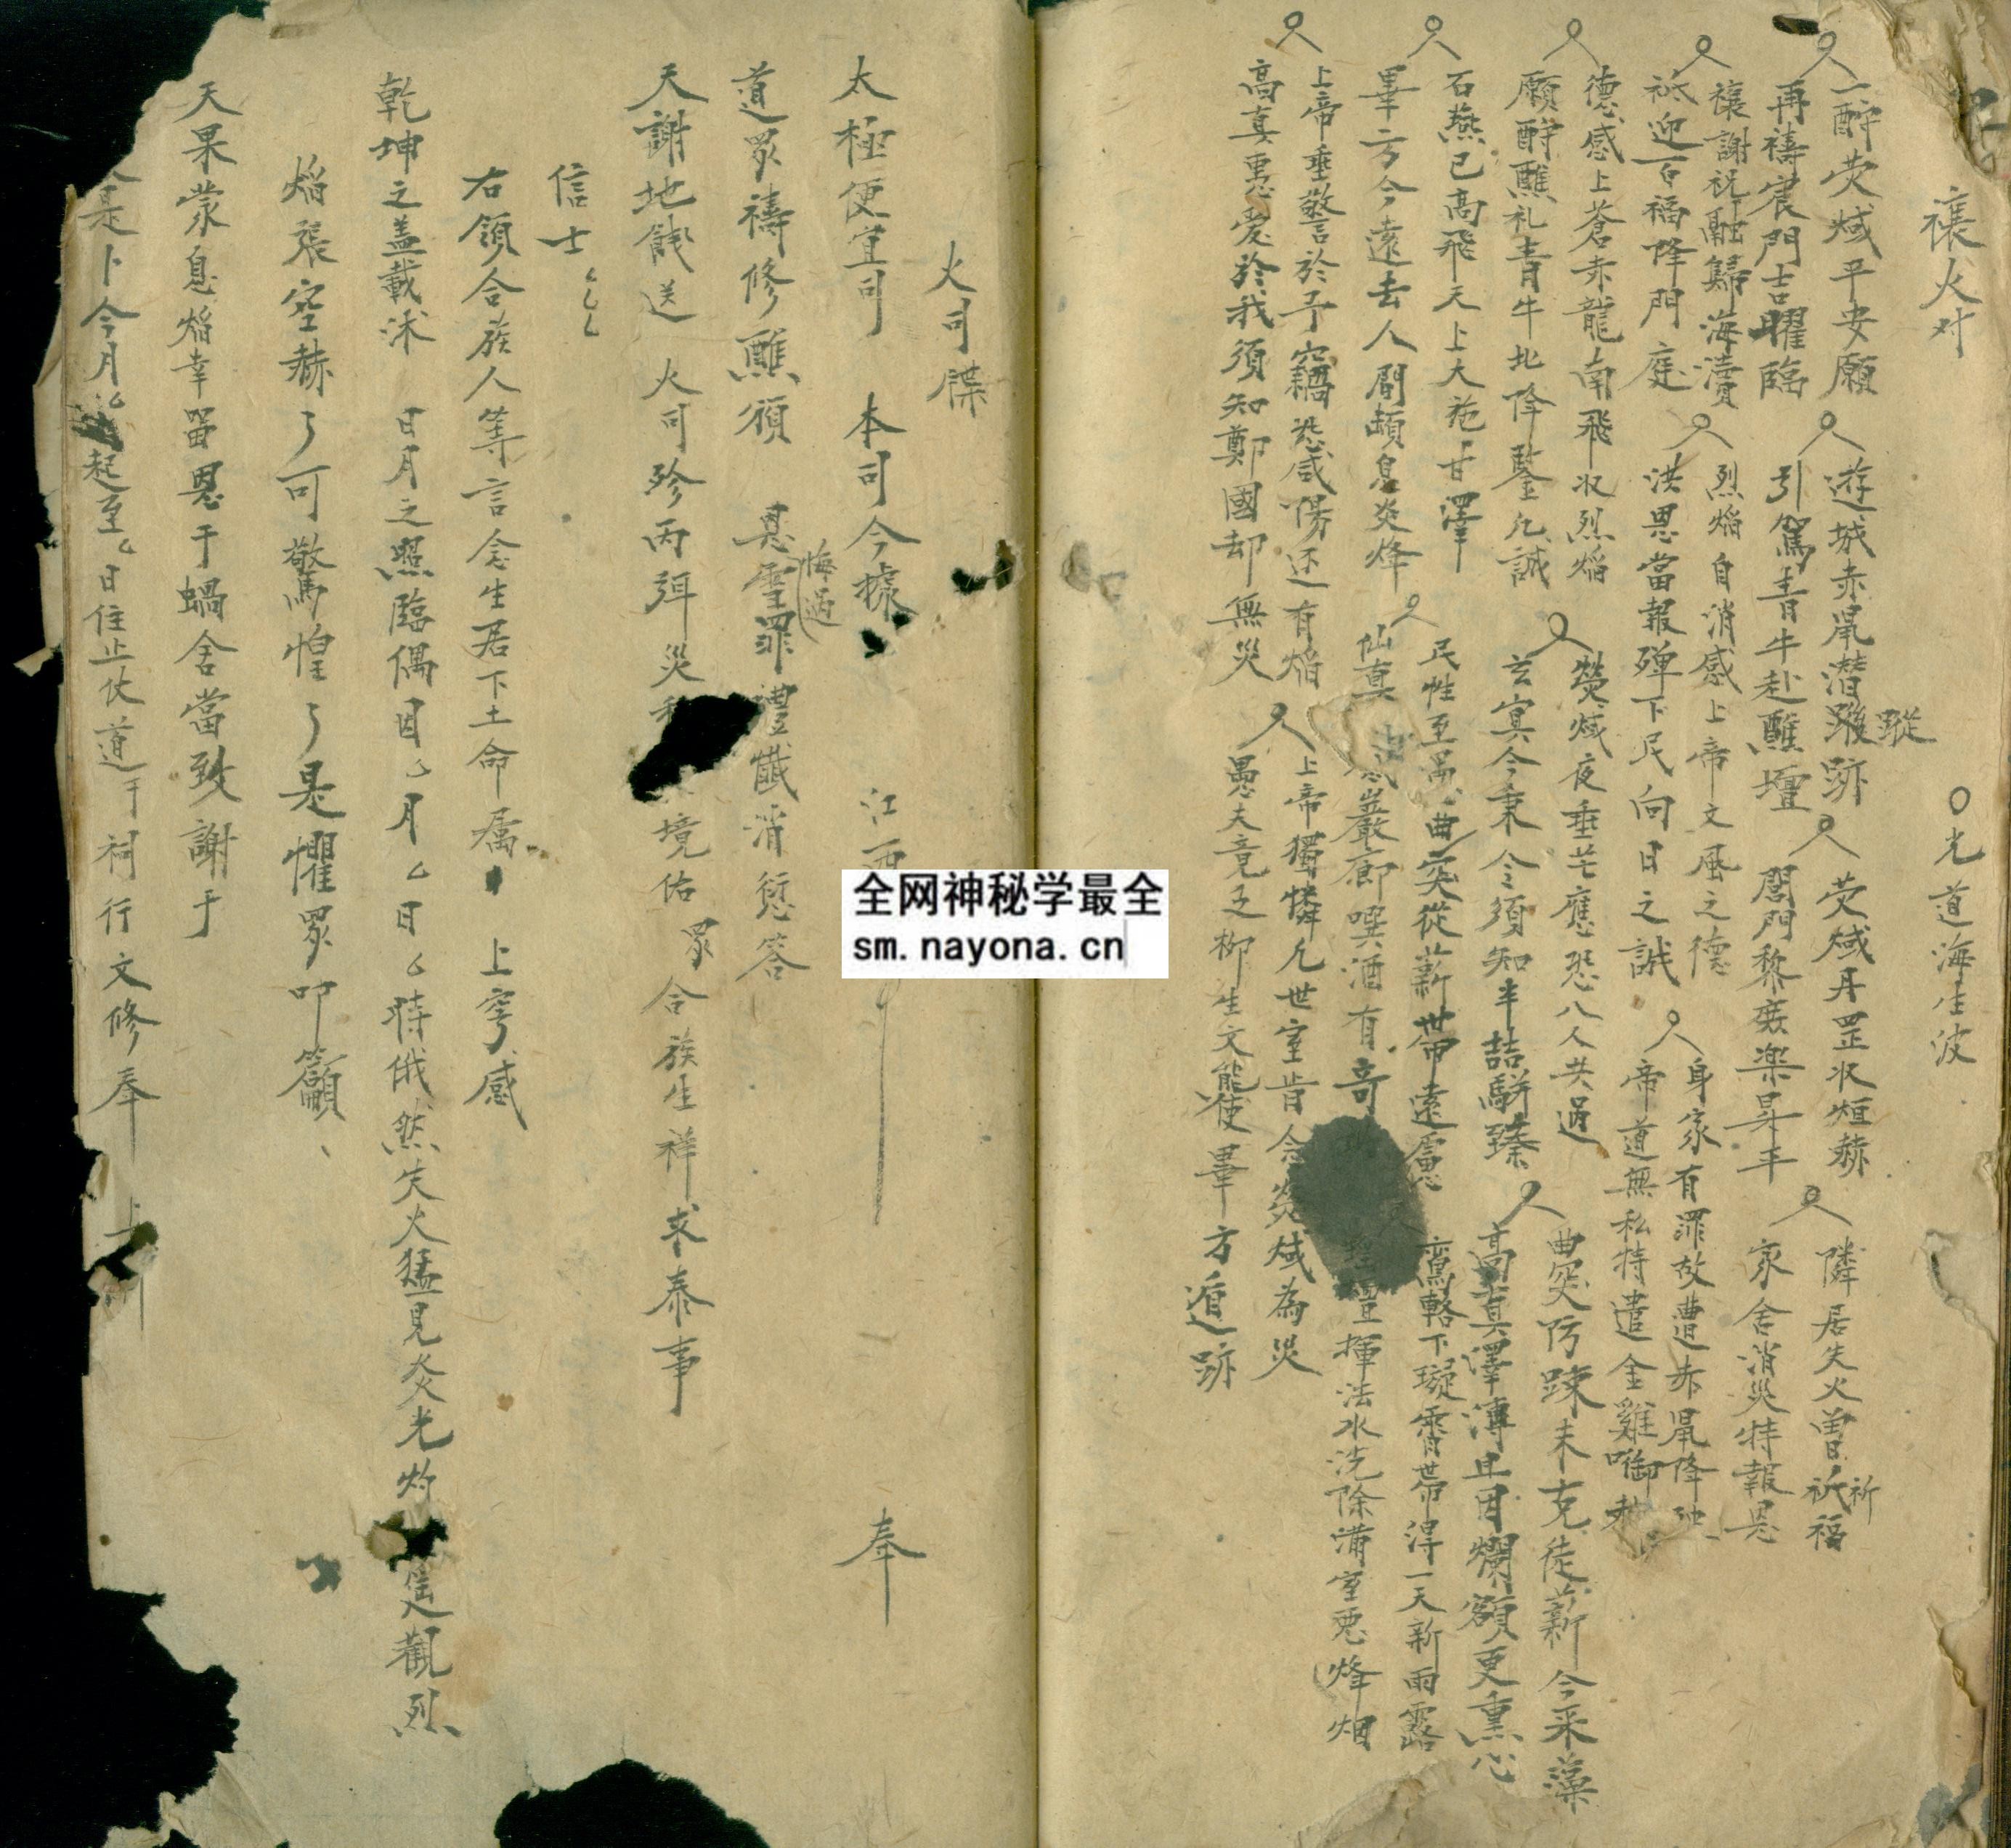 禳火对　光道海生波
一酧荧煘平安願
再禱宸門吉曜臨
遊城赤鳳潜踪跡
引駕青牛赴醮壇
荧煘丹罡収烜赫
閤門黎庶楽昇平
隣居失火曽祈福
家舍消災特報恩
禳謝祝融歸海瀆
祗迎百福降門庭
烈焰自消感上帝文風之德
洪恩當報殫下民向日之誠
身家有罪故遭赤鳳降
帝道無私特遣金雞啣
德感上蒼赤龍南飛収烈焰
願酧醮礼青牛北降鑒凡誠
熒煘夜垂芒應恐八人共過
玄冥今秉令須知羊喆駢臻
曲突防踈未克徙薪今来藻
高真澤溥且因爛額更熏心
石燕已高飛天上大施甘澤
畢方今遠去人間頓息炎烽
民性至愚曲突從薪带遠慮
仙真 嚴廊噀酒有奇
鸞輅下璇霄带得一天新雨露
揮法水洗除满室惡烽烟
上帝垂警於予竊恐咸傷还有焰
高真惠爱於我須知鄭國却無災
上帝獨憐凡世室肯念炎煘為災
愚夫竟乏柳生文能使畢方遁跡
火司牒
太極便宜司　本司今據　江西　奉
道眾禱修醮須　恳雪罪禮懺消愆答
悔過
天謝地餞送　火司殄丙弭災　境佑眾合族生祥求泰事
信士
右領合族人等言念生居下土命属　上穹感
乾坤之盖載沐　日月之照臨偶因厶月厶日厶時俄然失火猛見炎光灼　觀烈
焰張空赫了可驚惶了是懼眾叩籲
天果蒙息焰幸畱恩于蝸舍當致謝于
是卜今月厶　起至厶日住止仗道于祠行文修奉　上
全网神秘学最全
sm.nayona.cn